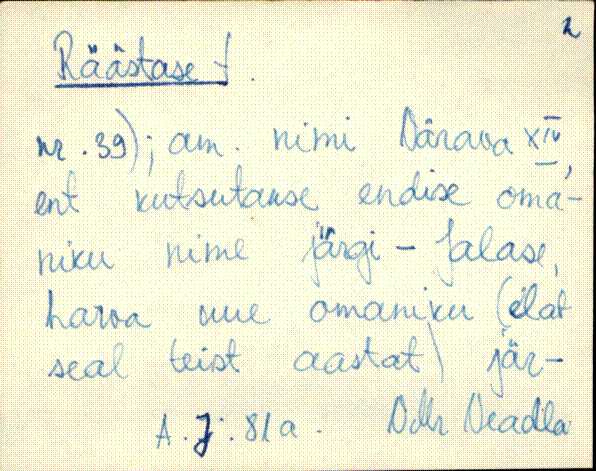 2
Räästase t.
nr. 39); am. nimi Därava XIV,
ent kutsutakse endise oma-
niku nime järgi - Jalase,
harva uue omaniku (elat
seal teist aastat) jär-
A. J. 81a.